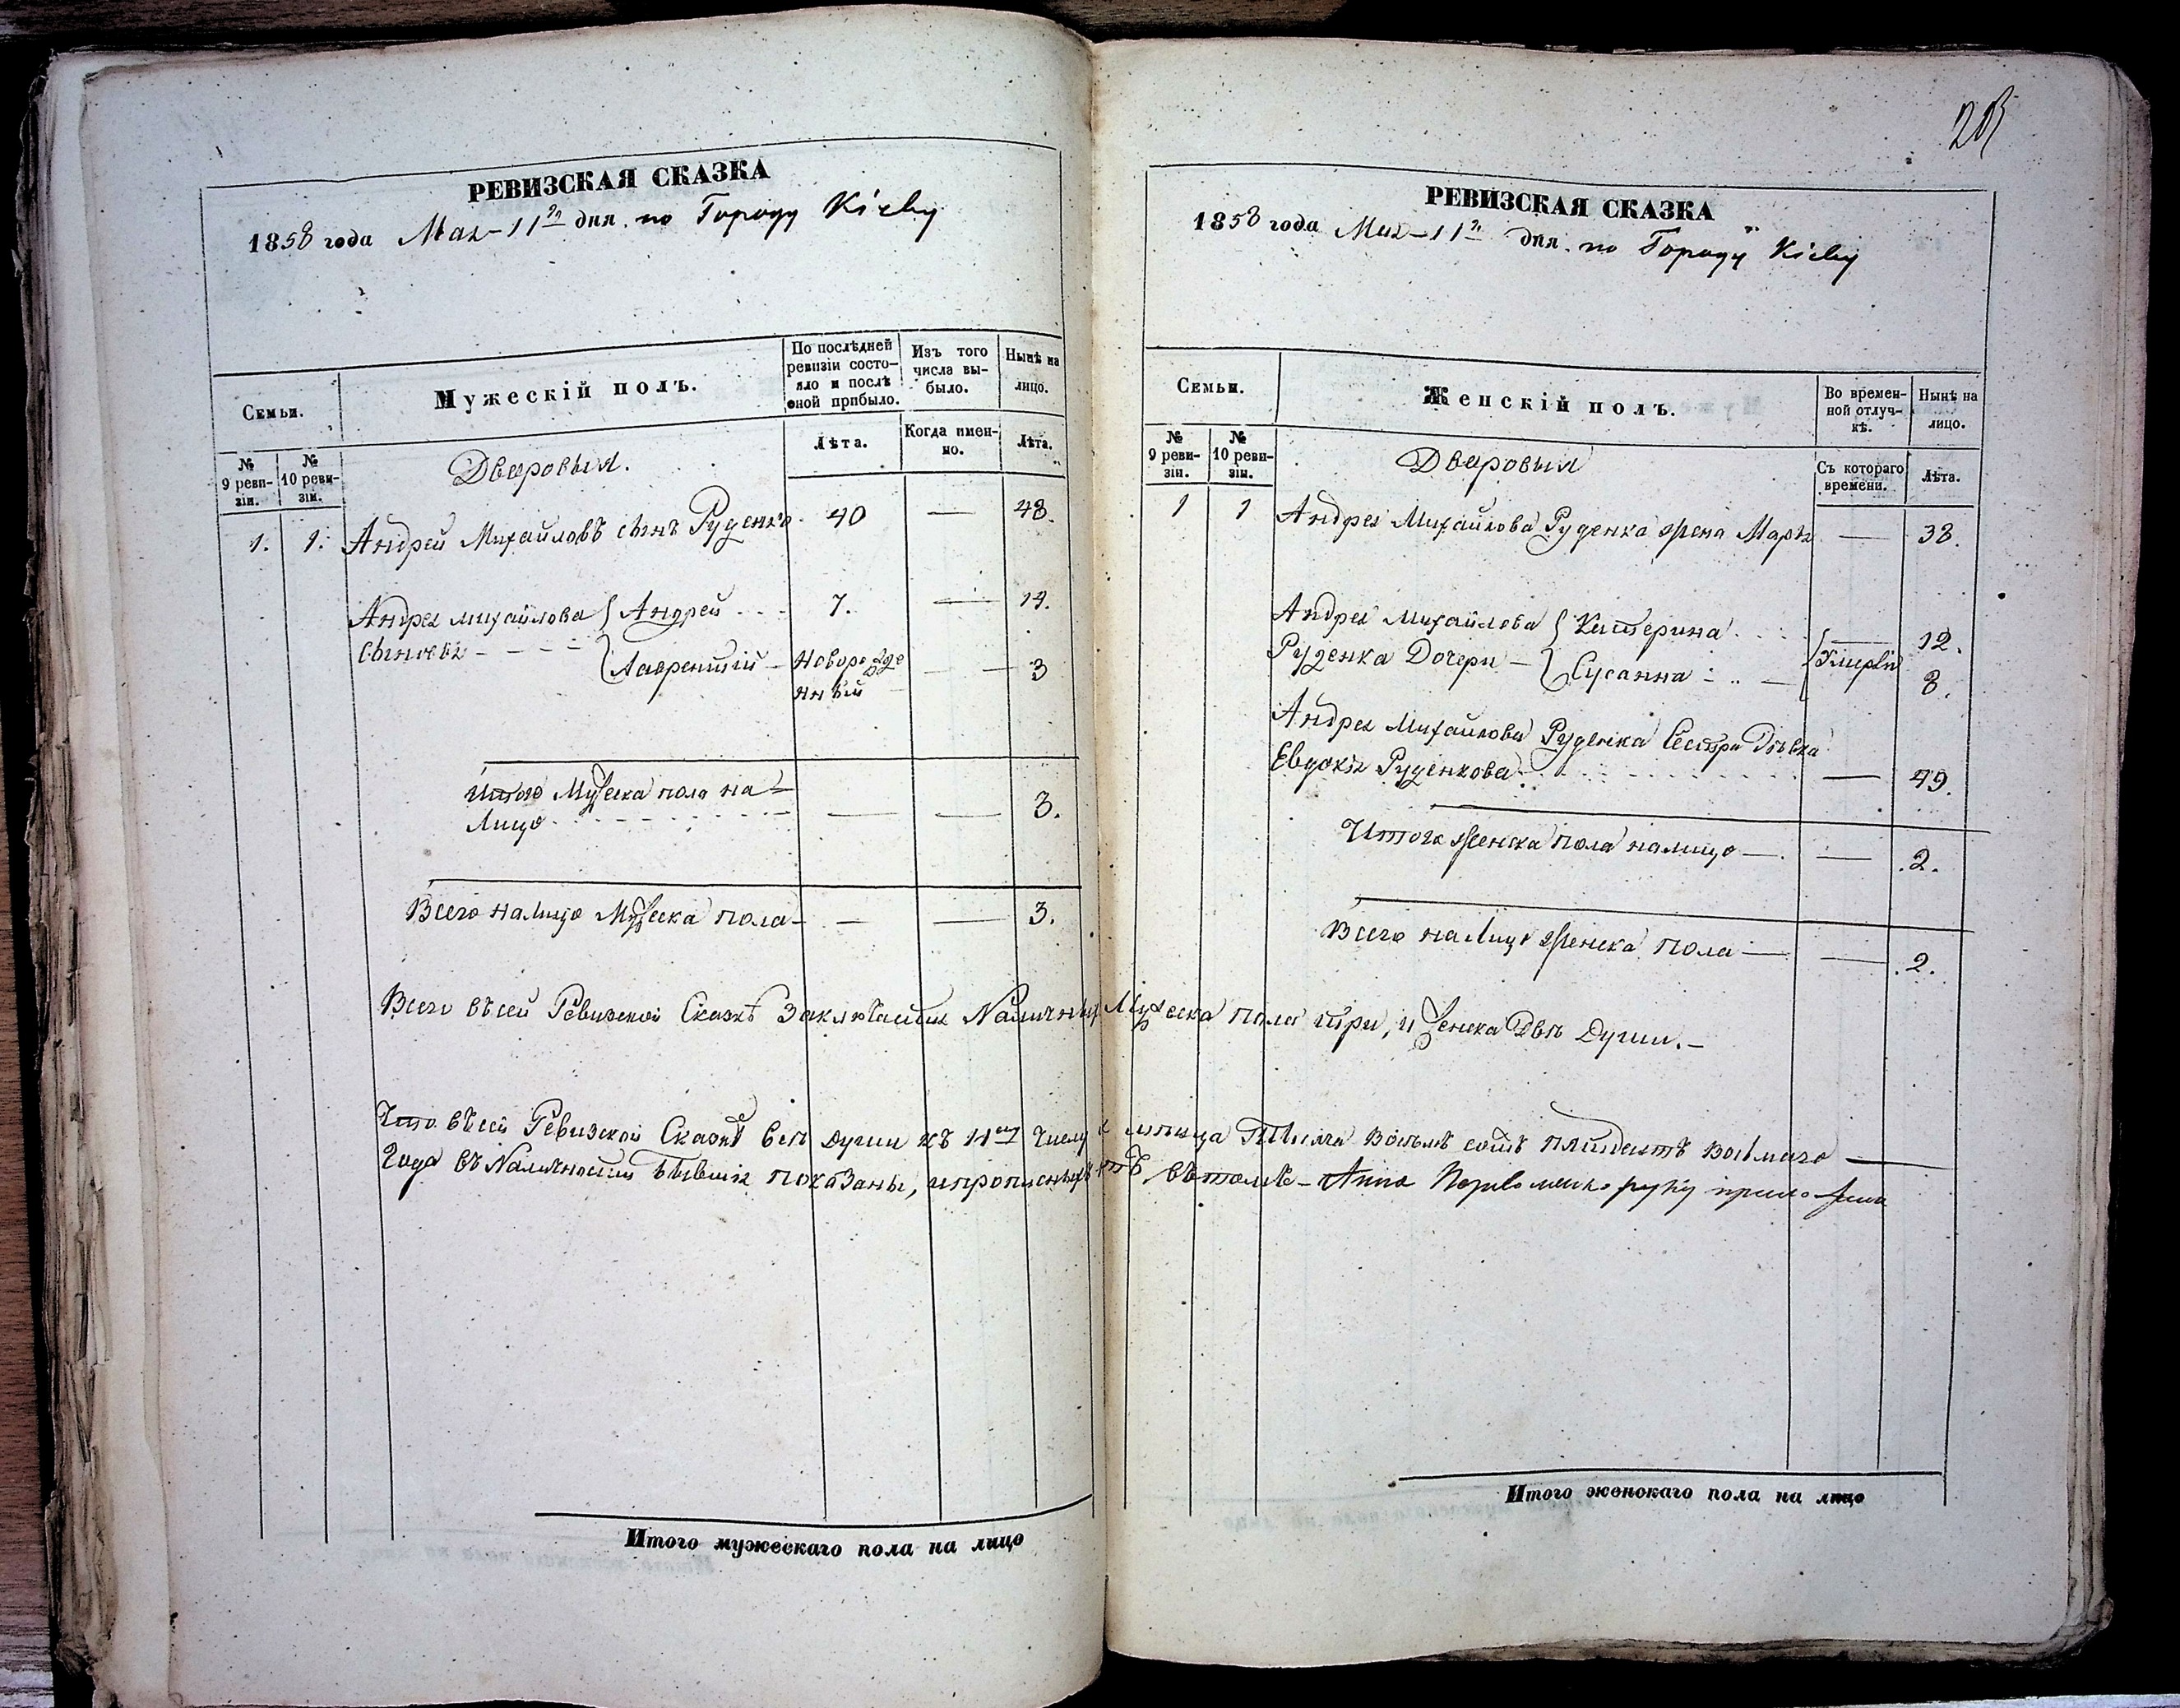 РЕВИЗСКАЯ СКАЗКА
1858 года Мая 11го дня. по Городу Кіеву
Семьи.
Мужескій полъ.
По послѣдней ревизіи состо-
яло и послѣ оной прибыло.
Изъ того числа вы-
было.
Нынѣ на лицо.
№ 9 реви-
зіи.
№ 10 реви-
зіи.
Лѣта.
Когда имен-
но.
Лѣта.
Дворовыя.
1. 1. Андрей Михайловъ сынъ Руденко 40 — 48.
Андрея Михайлова { Андрей 7. — 14.
сыновья { Лаврентій — Новорожде
нный — 3
Итого Мужеска пола на
Лицо — — 3.
Всего на лицо Мужеска пола — — 3.
Всего въ сей Ревизской Сказкѣ Заключается Наличныхъ Мужеска пола три, и Женска Двѣ Души. —
Что въ сей Ревизской Сказкѣ всѣ души къ 11му числу мѣсяца Тысяча восемь сотъ пятьдесятъ восьмаго
Года въ Наличности бывшія показаны, и прописныхъ нѣтъ въ томъ — Анна руку приложила
Итого мужескаго пола на лицо
РЕВИЗСКАЯ СКАЗКА
1858 года Мая 11го дня. по Городу Кіеву
Семьи.
Женскій полъ.
Во времен-
ной отлуч-
кѣ.
Нынѣ на лицо.
№ 9 реви-
зіи.
№ 10 реви-
зіи.
Съ котораго времени.
Лѣта.
Дворовыя
1 1 Андрея Михайлова Руденка жена Марья — 38.
Андрея Михайлова { Катерина — 12.
Руденка Дочери — { Сусанна — Умерли 8.
Андрея Михайлова Руденка Сестра Дѣвка
Евдокія Руденкова — 49.
Итого женска пола на лицо — — 2.
Всего на Лицо женска пола — — 2.
Итого женскаго пола на лицо